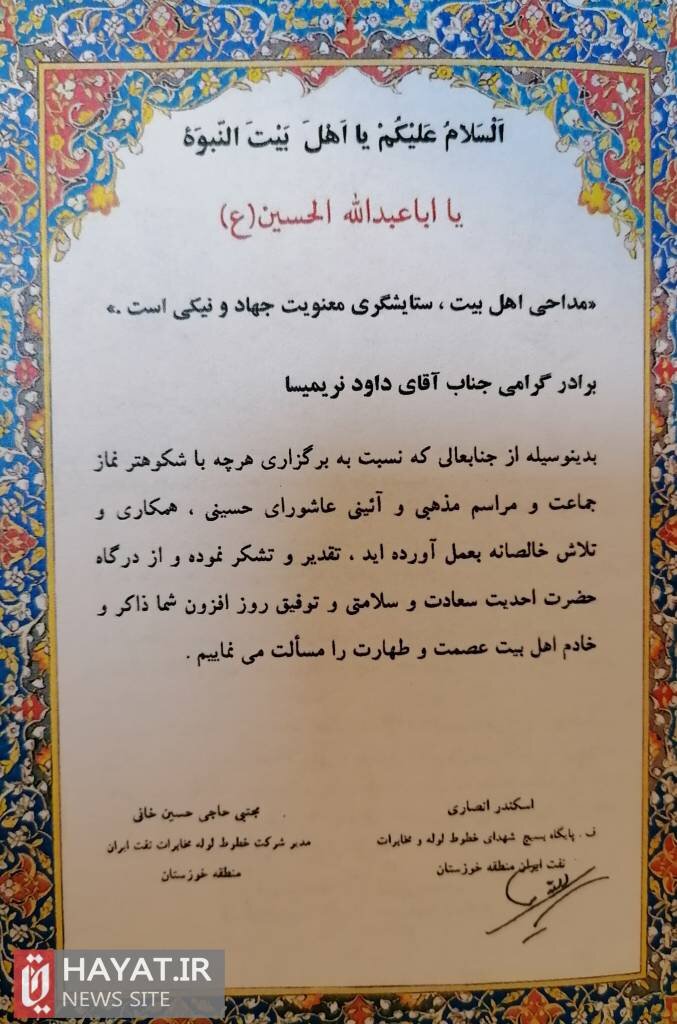 اَلْسَلامُ عَلَیْکُمْ یا اَهْلَ بَیْتَ النّبوَة
یا اباعبدالله الحسین(ع)
«مداحی اهل بیت ، ستایشگری معنویت جهاد و نیکی است .»
برادر گرامی جناب آقای داود نریمیسا
بدینوسیله از جنابعالی که نسبت به برگزاری هرچه با شکوهتر نماز
جماعت و مراسم مذهبی و آئینی عاشورای حسینی ، همکاری و
تلاش خالصانه بعمل آورده اید ، تقدیر و تشکر نموده و از درگاه
حضرت احدیت سعادت و سلامتی و توفیق روز افزون شما ذاکر و
خادم اهل بیت عصمت و طهارت را مسألت می نماییم .
اسکندر انصاری
ف . پایگاه بسیج شهدای خطوط لوله و مخابرات
نفت ایران منطقه خوزستان
مجتبی حاجی حسین خانی
مدیر شرکت خطوط لوله مخابرات نفت ایران
منطقه خوزستان
HAYAT.IR
NEWS SITE